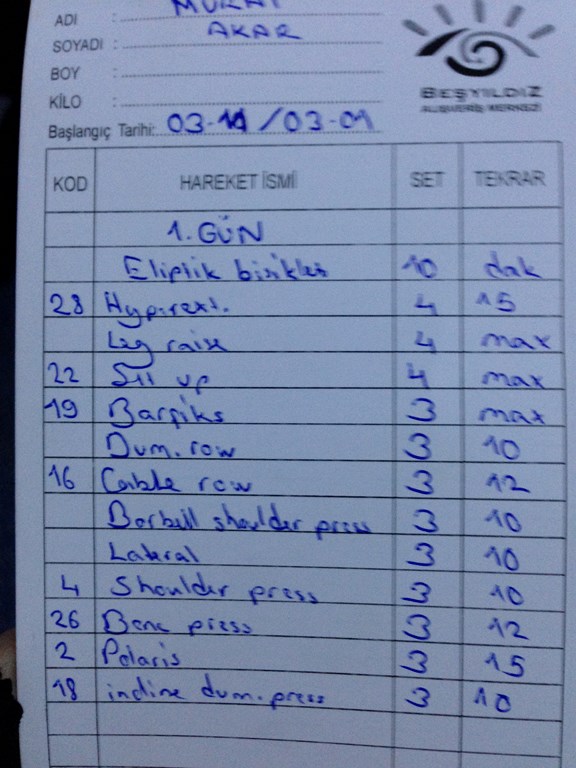 ADI : MURAT
SOYADI : AKAR
BOY :
KİLO :
Başlangıç Tarihi: 03-11/03-01
BEŞYILDIZ
ALIŞVERİŞ MERKEZİ
KOD HAREKET İSMİ SET TEKRAR
1. GÜN
Eliptik bisiklet 10 dak
28 Hyp.rext. 4 15
Leg raise 4 max
22 Sit up 4 max
19 Barfiks 3 max
Dum. row 3 10
16 Cable row 3 12
Barbell shoulder press 3 10
Lateral 3 10
4 Shoulder press 3 10
26 Benc press 3 12
2 Pelaris 3 15
18 incline dum. press 3 10